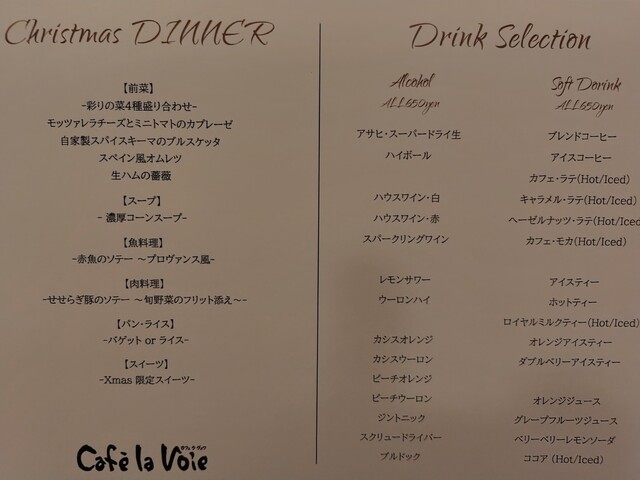 Christmas DINNER
【前菜】
-彩りの菜4種盛り合わせ-
モッツァレラチーズとミニトマトのカプレーゼ
自家製スパイスキーマのブルスケッタ
スペイン風オムレツ
生ハムの薔薇
【スープ】
- 濃厚コーンスープ-
【魚料理】
-赤魚のソテー ～プロヴァンス風-
【肉料理】
-せせらぎ豚のソテー ～旬野菜のフリット添え～-
【パン・ライス】
-バゲット or ライス-
【スイーツ】
-Xmas 限定スイーツ-
カフェ ラ ヴォワ
Cafè la Voie
Drink Selection
Alcohol
ALL650yen
アサヒ・スーパードライ生
ハイボール
ハウスワイン・白
ハウスワイン・赤
スパークリングワイン
レモンサワー
ウーロンハイ
カシスオレンジ
カシスウーロン
ピーチオレンジ
ピーチウーロン
ジントニック
スクリュードライバー
ブルドック
Soft Dorink
ALL650yen
ブレンドコーヒー
アイスコーヒー
カフェ・ラテ(Hot/Iced)
キャラメル・ラテ(Hot/Iced)
ヘーゼルナッツ・ラテ(Hot/Iced
カフェ・モカ(Hot/Iced)
アイスティー
ホットティー
ロイヤルミルクティー(Hot/Iced)
オレンジアイスティー
ダブルベリーアイスティー
オレンジジュース
グレープフルーツジュース
ベリーベリーレモンソーダ
ココア (Hot/Iced)